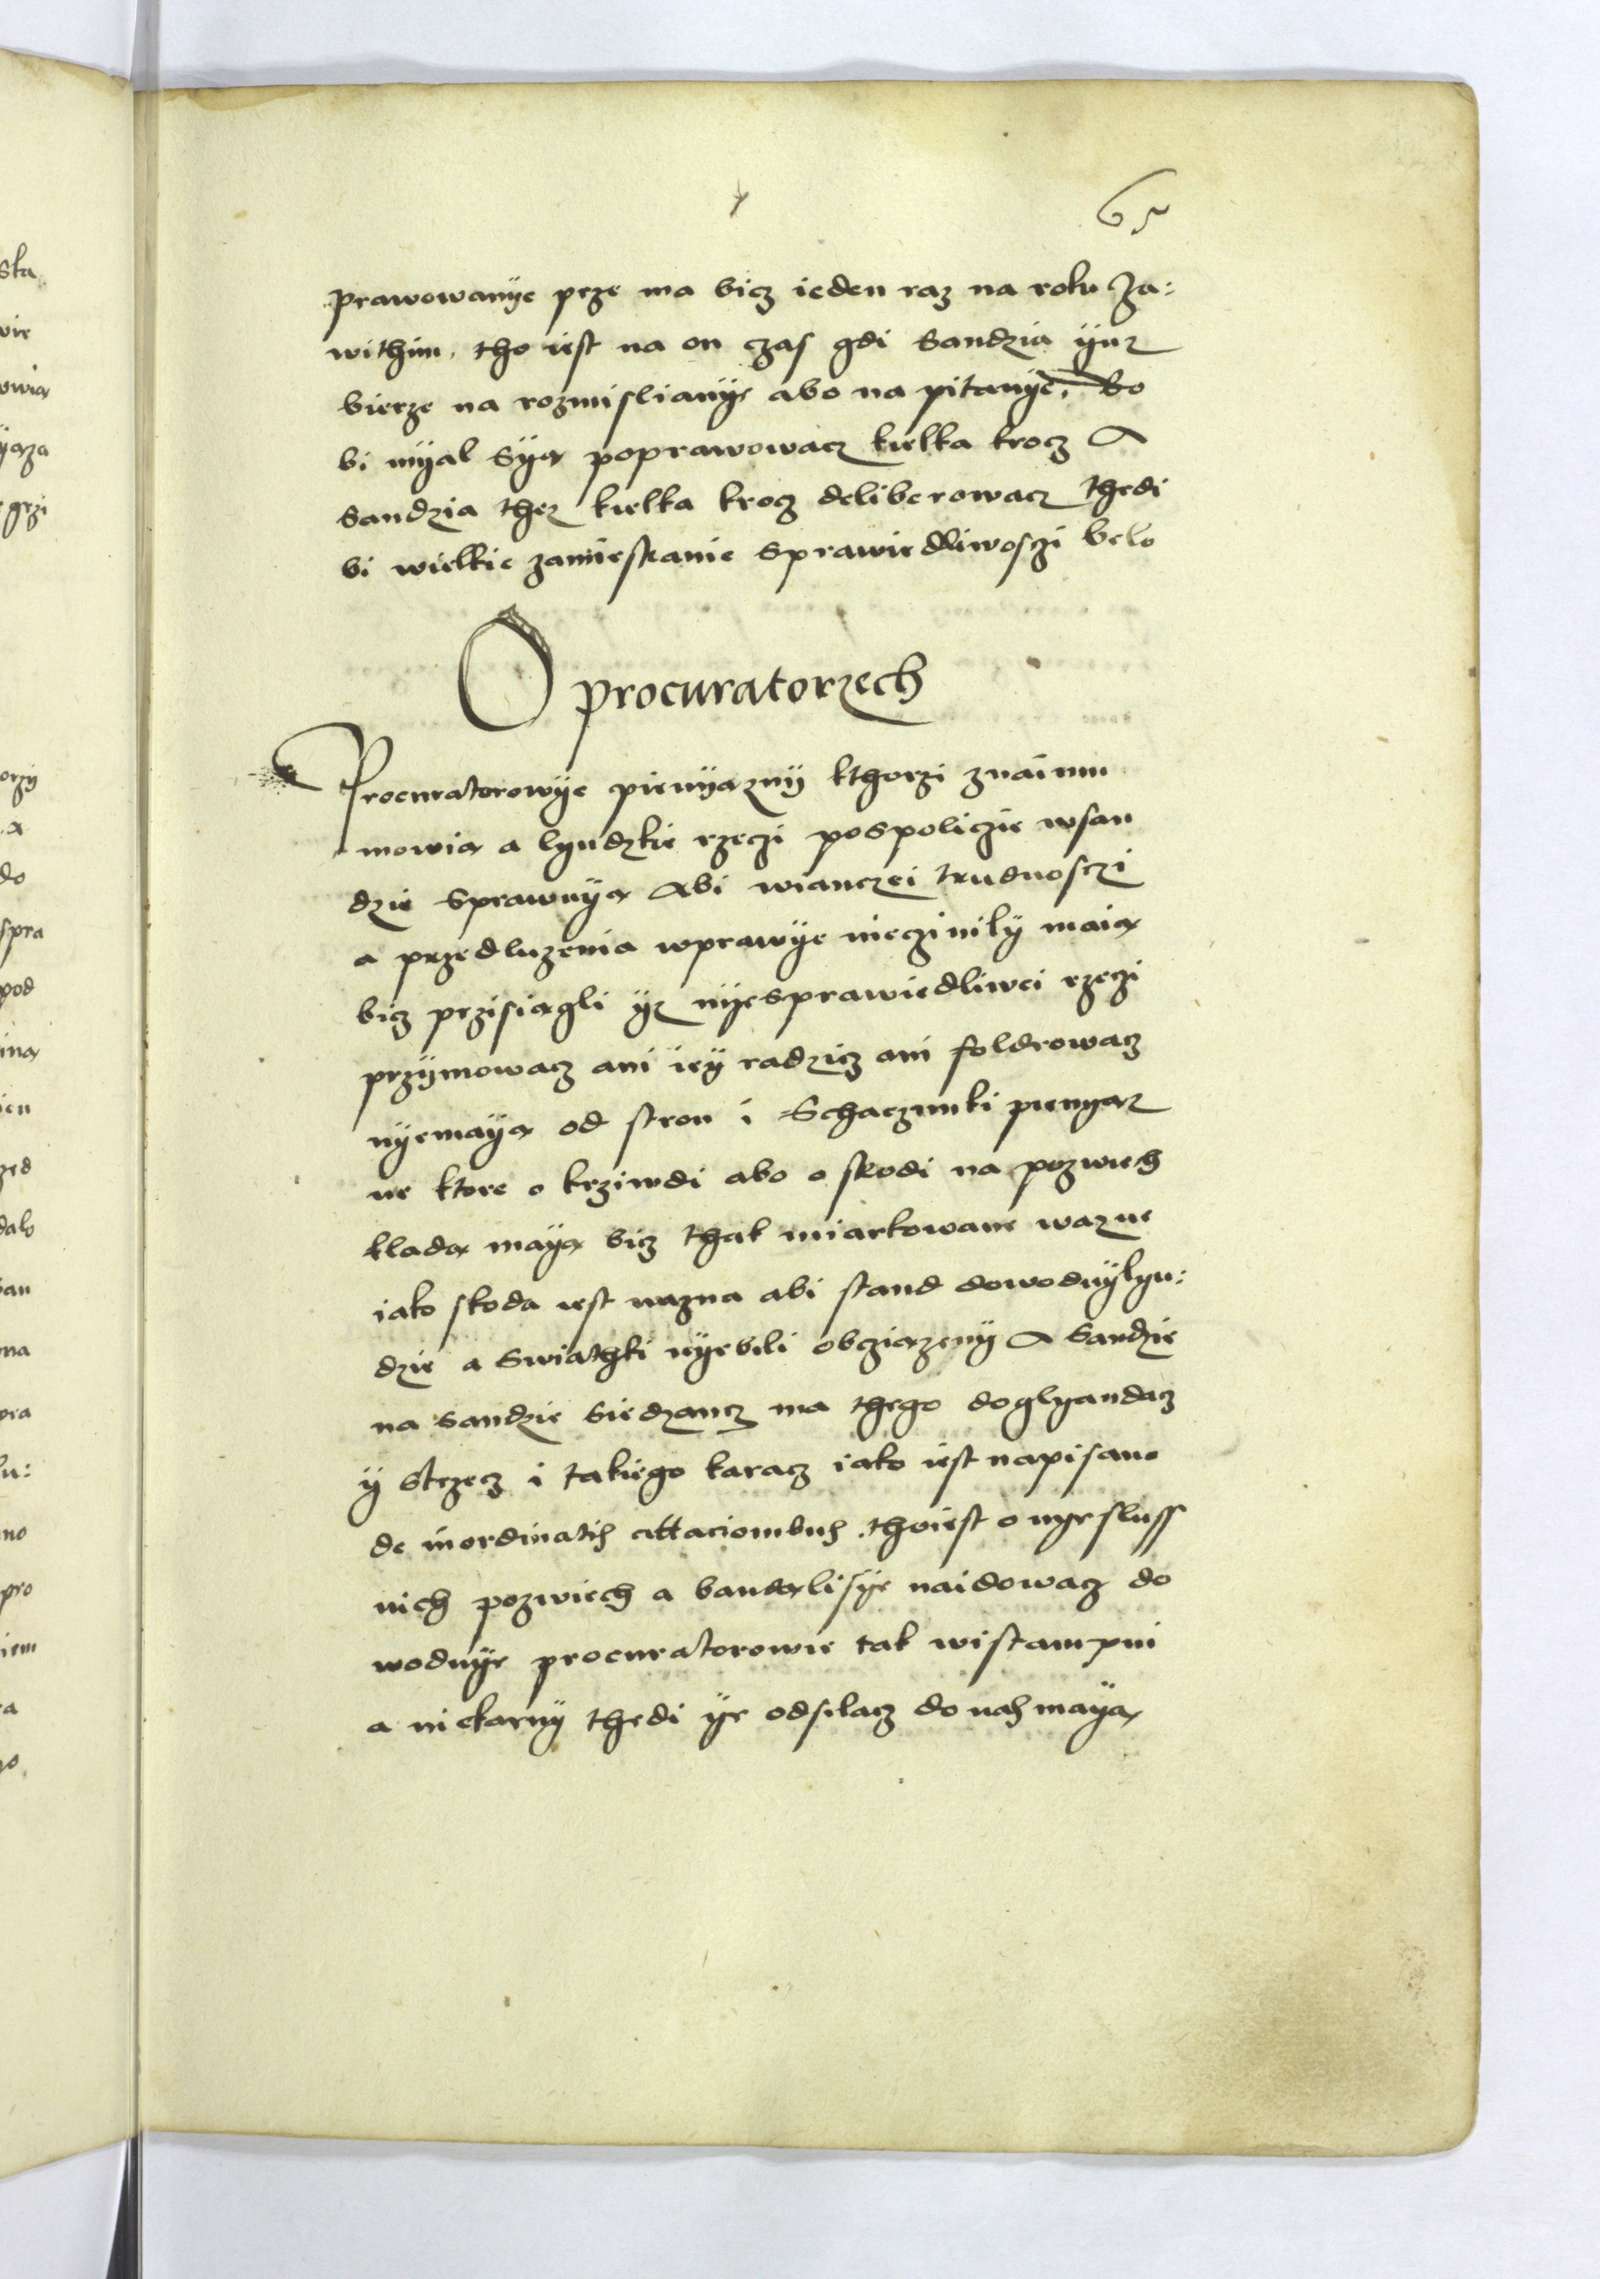 65
prawowanÿe prze ma bicz ieden raz na roku Za:
withim, tho iest na on czas gdi Sandzia ÿuz
bierze na rozmislianÿe abo na pitanÿe, bo
bi mÿal Sÿą poprawowacz kielka krocz A
Sandzia thez kielka krocz deliberowacz thedi
bi wielkie zamieskanie Sprawiedliwosczi belo
O procuratorzech
Procuratorowÿe pienÿąznÿ kthorzi znaimu
mowią a lyudzkie rzeczi pospoliczie wsan
dzie Sprawuÿą Abi wianczei trudnosczi
a przedluzenia wprawÿe nieczinilÿ maią
bicz przisięgli ÿz nÿesprawiedliwei rzeczi
przÿmowacz ani ieÿ radzicz ani foldrowacz
nÿemaÿą od stron i Schaczunki pienyąz
ne ktore o krziwdi abo o skodi na pozwiech
kladą maÿą bicz thak miarkowane wazne
iako skoda iest wazna abi stand dowodnÿ lyu:
dzie a Swiathki nÿebili obcziązenÿ A Sandzie
na Sandzie Siedzancz ma thego doglyandacz
ÿ Strzecz i takiego karacz iako iest napisano
de inordinatis cittacionibus. thoiest o nye sluss
nich pozwiech a bandąlisÿe naidowacz do
wodnÿe procuratorowie tak wistampni
a niekarnÿ thedi ÿe odsilacz do nas maÿą